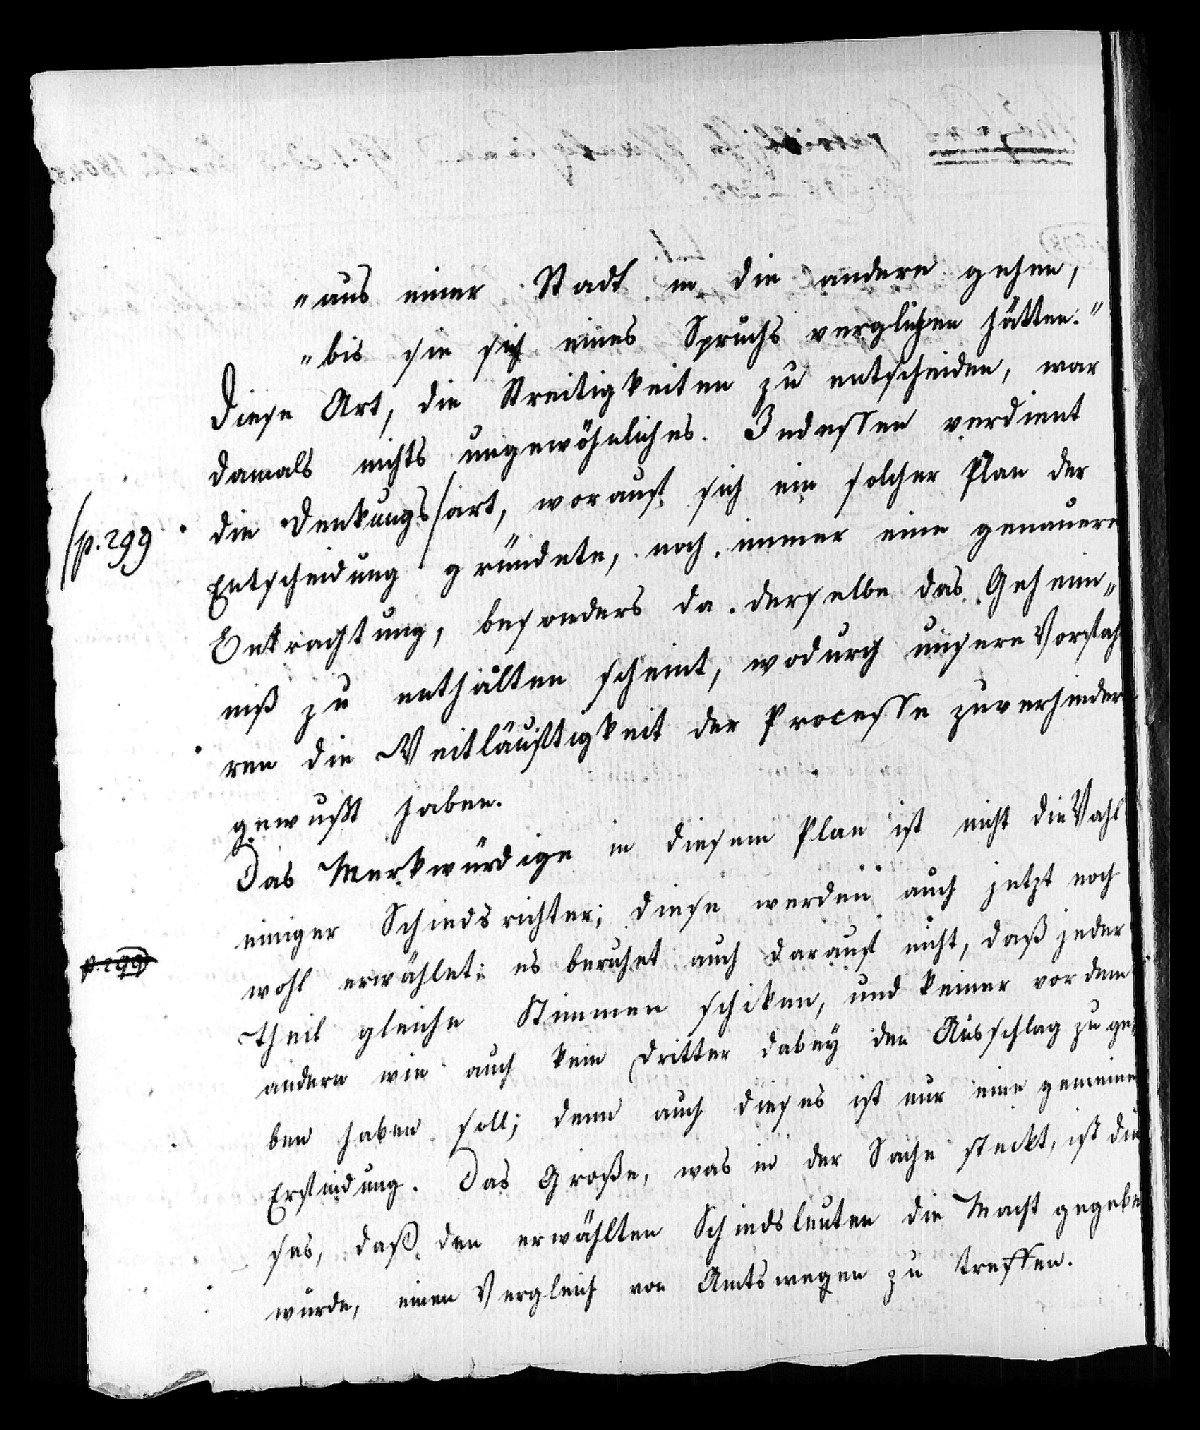 "aus einer Stadt in die andere gehen,
"bis sie sich eines Spruchs verglichen hätten."
Diese Art, die Streitigkeiten zu entscheiden, war
damals nichts ungewöhnliches. Indessen verdient
die Denkungs/art, worauf sich ein solcher Plan der
/p. 299
Entscheidung gründete, noch immer eine genauere
Betrachtung, besonders da derselbe das Geheim„
niß zu enthalten scheint, wodurch unsere Vorfah
ren die Weitläuftigkeit der Processe zuverhindern
gewußt haben.
Das Merkwürdige in diesem Plan ist nicht die Wahl
einiger Schiedsrichter; diese werden auch jetzt noch
wohl erwählet; es beruhet auch darauf nicht, daß jeder
p. 299
Theil gleiche Stimmen schiken, und keiner vor dem
andern wie auch kein Dritter dabey den Ausschlag zu ge„
ben haben soll; denn auch dieses ist nur eine gemeine
Erfindung. Das Große, was in der Sache steckt, ist die
ses, daß den erwählten Schiedsleuten die Macht gegeben
wurde, einen Vergleich von Amtswegen zu treffen.